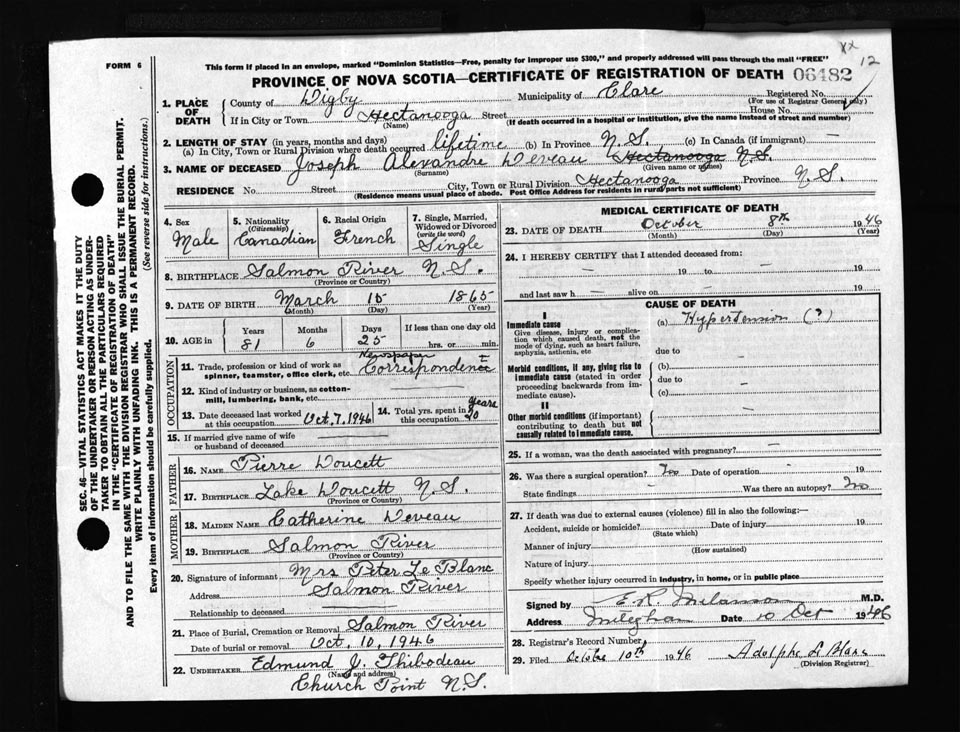 xx
12
FORM 6
This form if placed in an envelope, marked "Dominion Statistics—Free, penalty for improper use $300," and properly addressed will pass through the mail "FREE"
PROVINCE OF NOVA SCOTIA—CERTIFICATE OF REGISTRATION OF DEATH 06482
1. PLACE OF DEATH
County of Digby Municipality of Clare Registered No.
(For use of Registrar General only)
If in City or Town Hectanooga Street House No.
(Name) (If death occurred in a hospital or institution, give the name instead of street and number)
2. LENGTH OF STAY (in years, months and days)
(a) In City, Town or Rural Division where death occurred lifetime (b) In Province N.S. (c) In Canada (if immigrant) —
3. NAME OF DECEASED Joseph Alexandre Deveau Hectanooga N.S.
(Surname) (Given name or names)
RESIDENCE No. Street City, Town or Rural Division Hectanooga Province N.S.
(Residence means usual place of abode. Post Office Address for residents in rural parts not sufficient)
4. Sex Male
5. Nationality (Citizenship) Canadian
6. Racial Origin French
7. Single, Married, Widowed or Divorced (write the word) Single
8. BIRTHPLACE Salmon River N.S.
(Province or Country)
9. DATE OF BIRTH March 15 1865
(Month) (Day) (Year)
10. AGE in Years Months Days If less than one day old
81 6 25 hrs. or min.
OCCUPATION
11. Trade, profession or kind of work as spinner, teamster, office clerk, etc. Newspaper Correspondence
12. Kind of industry or business, as cotton-mill, lumbering, bank, etc.
13. Date deceased last worked at this occupation Oct. 7, 1946
14. Total yrs. spent in this occupation 20 years
15. If married give name of wife or husband of deceased
FATHER
16. NAME Pierre Doucett
17. BIRTHPLACE Lake Doucett N.S.
(Province or Country)
MOTHER
18. MAIDEN NAME Catherine Deveau
19. BIRTHPLACE Salmon River
(Province or Country)
20. Signature of informant Mrs Peter Le Blanc
Address Salmon River
Relationship to deceased
21. Place of Burial, Cremation or Removal Salmon River
Date of burial or removal Oct. 10, 1946
22. UNDERTAKER Edmund J. Thibodeau
(Name and address)
Church Point N.S.
MEDICAL CERTIFICATE OF DEATH
23. DATE OF DEATH October 8th 1946
(Month) (Day) (Year)
24. I HEREBY CERTIFY that I attended deceased from:
— 19 to — 19
and last saw h — alive on — 19
CAUSE OF DEATH
I
Immediate cause (a) Hypertension (?)
Give disease, injury or complication which caused death, not the mode of dying, such as heart failure, asphyxia, asthenia, etc
due to —
Morbid conditions, if any, giving rise to immediate cause (stated in order proceeding backwards from immediate cause).
(b)
due to —
(c)
II
Other morbid conditions (if important) contributing to death but not causally related to immediate cause. —
25. If a woman, was the death associated with pregnancy? —
26. Was there a surgical operation? No Date of operation — 19
State findings — Was there an autopsy? No
27. If death was due to external causes (violence) fill in also the following:—
Accident, suicide or homicide? Date of injury 19
(State which)
Manner of injury —
(How sustained)
Nature of injury
Specify whether injury occurred in industry, in home, or in public place
Signed by E. R. Melanson M.D.
Address Meteghan Date 10 Oct 1946
28. Registrar's Record Number
29. Filed Octobre 10th 1946 Adolphe L Blanc
(Division Registrar)
SEC. 46—VITAL STATISTICS ACT MAKES IT THE DUTY
OF THE UNDERTAKER OR PERSON ACTING AS UNDER-
TAKER TO OBTAIN ALL THE PARTICULARS REQUIRED
IN THE "CERTIFICATE OF REGISTRATION OF DEATH"
AND TO FILE THE SAME WITH THE DIVISION REGISTRAR WHO SHALL ISSUE THE BURIAL PERMIT.
WRITE PLAINLY WITH UNFADING INK. THIS IS A PERMANENT RECORD.
Every item of information should be carefully supplied. (See reverse side for instructions.)